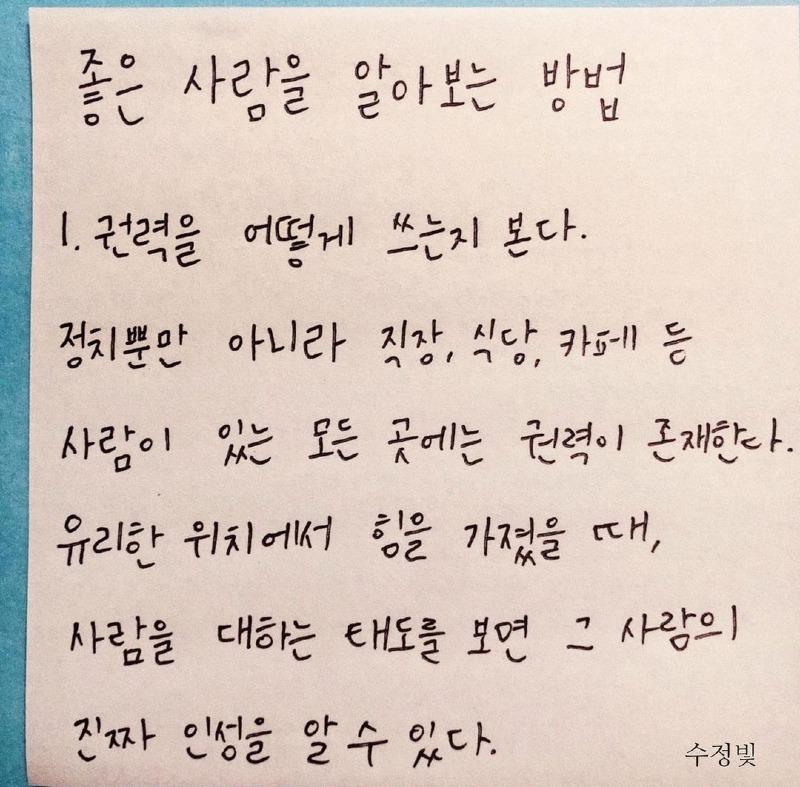 좋은 사람을 알아보는 방법
1. 권력을 어떻게 쓰는지 본다.
정치뿐만 아니라 직장, 식당, 카페 등
사람이 있는 모든 곳에는 권력이 존재한다.
유리한 위치에서 힘을 가졌을 때,
사람을 대하는 태도를 보면 그 사람의
진짜 인성을 알 수 있다.
수정빛